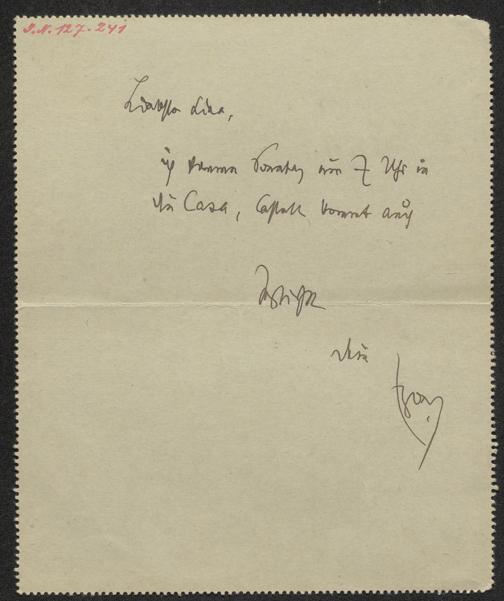 I.N. 127.241
Liebster Lina,
ich komme Sonntag um 7 Uhr in
die Casa, kommt auch
Herzlichst
Dein